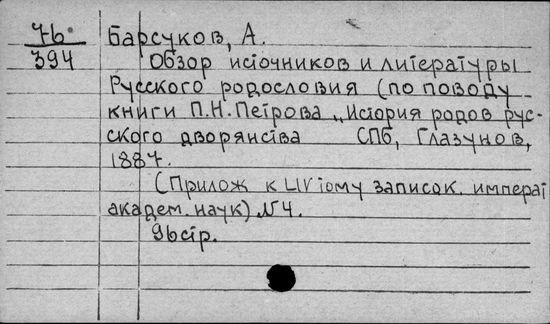 7б
394
Барсуков, А.
Обзор источников и литературы
Русского родословия (по поводу
книги П.Н.Петрова „История родов рус-
ского дворянства СПб, Глазунов,
1887.
(Прилож к LIV тому записок. императ
академ. наук) №4.
96 стр.